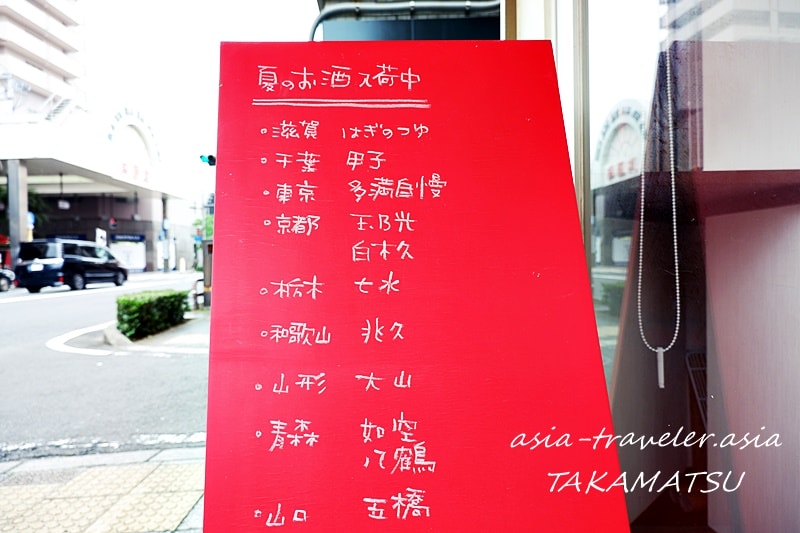 夏のお酒入荷中
・滋賀 はぎのつゆ
・千葉 甲子
・東京 多満自慢
・京都 玉乃光
白木久
・栃木 七水
・和歌山 兆久
・山形 大山
・青森 如空
八鶴
・山口 五橋
asia-traveler.asia
TAKAMATSU